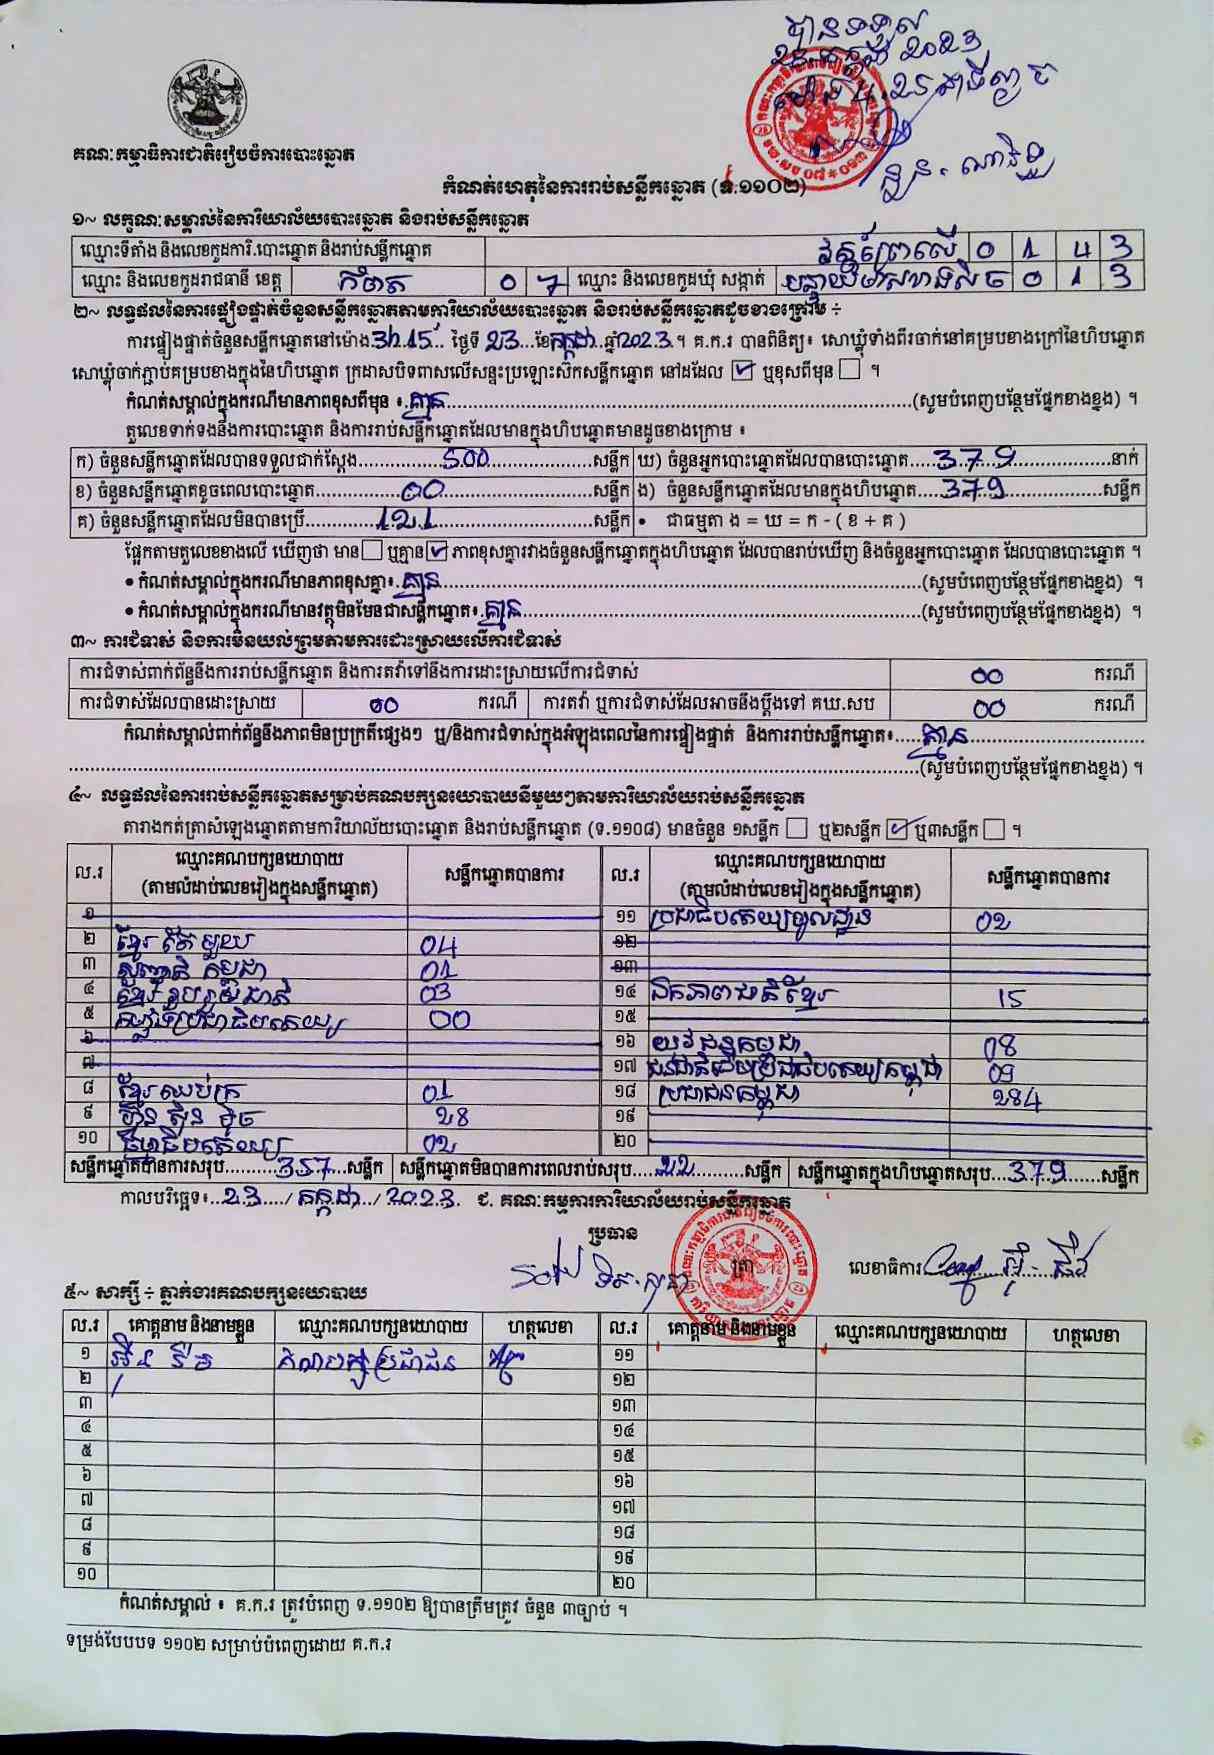 បានទទួល
២៣ កក្កដា 2023
ម៉ោង 4:25 នាទីល្ងាច
គណៈកម្មាធិការជាតិរៀបចំការបោះឆ្នោត
កំណត់ហេតុនៃការរាប់សន្លឹកឆ្នោត (ទ.១១០២)
១~ លក្ខណៈសម្គាល់នៃការិយាល័យបោះឆ្នោត និងរាប់សន្លឹកឆ្នោត
ឈ្មោះទីតាំង និងលេខកូដការិ.បោះឆ្នោត និងរាប់សន្លឹកឆ្នោត វត្តព្រៃលើ 0 1 4 3
ឈ្មោះ និងលេខកូដរាជធានី ខេត្ត កំពត 0 7 ឈ្មោះ និងលេខកូដឃុំ សង្កាត់ 0 1 3
២~ លទ្ធផលនៃការផ្ទៀងផ្ទាត់ចំនួនសន្លឹកឆ្នោតតាមការិយាល័យបោះឆ្នោត និងរាប់សន្លឹកឆ្នោតដូចខាងក្រោម ÷
ការផ្ទៀងផ្ទាត់ចំនួនសន្លឹកឆ្នោតនៅម៉ោង 3h15 ថ្ងៃទី 23 ខែកក្កដា ឆ្នាំ2023 ។ គ.ក.រ បានពិនិត្យ៖ សោឃ្លុំទាំងពីរចាក់នៅគម្របខាងក្រៅនៃហិបឆ្នោត
សោឃ្លុំចាក់ភ្ជាប់គម្របខាងក្នុងនៃហិបឆ្នោត ក្រដាសបិទពាសលើសន្ទះប្រឡោះស៊កសន្លឹកឆ្នោត នៅដដែល ☑ ឬខុសពីមុន ☐ ។
កំណត់សម្គាល់ក្នុងករណីមានភាពខុសពីមុន ៖ គ្មាន (សូមបំពេញបន្ថែមផ្នែកខាងខ្នង) ។
តួលេខទាក់ទងនឹងការបោះឆ្នោត និងការរាប់សន្លឹកឆ្នោតដែលមានក្នុងហិបឆ្នោតមានដូចខាងក្រោម ៖
ក) ចំនួនសន្លឹកឆ្នោតដែលបានទទួលជាក់ស្តែង 500 សន្លឹក ឃ) ចំនួនអ្នកបោះឆ្នោតដែលបានបោះឆ្នោត 379 នាក់
ខ) ចំនួនសន្លឹកឆ្នោតខូចពេលបោះឆ្នោត 00 សន្លឹក ង) ចំនួនសន្លឹកឆ្នោតដែលមានក្នុងហិបឆ្នោត 379 សន្លឹក
គ) ចំនួនសន្លឹកឆ្នោតដែលមិនបានប្រើ 121 សន្លឹក • ជាធម្មតា ង = ឃ = ក - ( ខ + គ )
ផ្អែកតាមតួលេខខាងលើ ឃើញថា មាន ☐ ឬគ្មាន ☑ ភាពខុសគ្នារវាងចំនួនសន្លឹកឆ្នោតក្នុងហិបឆ្នោត ដែលបានរាប់ឃើញ និងចំនួនអ្នកបោះឆ្នោត ដែលបានបោះឆ្នោត ។
• កំណត់សម្គាល់ក្នុងករណីមានភាពខុសគ្នា៖ គ្មាន (សូមបំពេញបន្ថែមផ្នែកខាងខ្នង) ។
• កំណត់សម្គាល់ក្នុងករណីមានវត្ថុមិនមែនជាសន្លឹកឆ្នោត៖ គ្មាន (សូមបំពេញបន្ថែមផ្នែកខាងខ្នង) ។
៣~ ការជំទាស់ និងការមិនយល់ព្រមតាមការដោះស្រាយលើការជំទាស់
ការជំទាស់ពាក់ព័ន្ធនឹងការរាប់សន្លឹកឆ្នោត និងការតវ៉ាទៅនឹងការដោះស្រាយលើការជំទាស់ 00 ករណី
ការជំទាស់ដែលបានដោះស្រាយ 00 ករណី ការតវ៉ា ឬការជំទាស់ដែលអាចនឹងប្តឹងទៅ គឃ.សប 00 ករណី
កំណត់សម្គាល់ពាក់ព័ន្ធនឹងភាពមិនប្រក្រតីផ្សេងៗ ឬ/និងការជំទាស់ក្នុងអំឡុងពេលនៃការផ្ទៀងផ្ទាត់ និងការរាប់សន្លឹកឆ្នោត៖ គ្មាន
(សូមបំពេញបន្ថែមផ្នែកខាងខ្នង) ។
៤~ លទ្ធផលនៃការរាប់សន្លឹកឆ្នោតសម្រាប់គណបក្សនយោបាយនីមួយៗតាមការិយាល័យរាប់សន្លឹកឆ្នោត
តារាងកត់ត្រាសំឡេងឆ្នោតតាមការិយាល័យបោះឆ្នោត និងរាប់សន្លឹកឆ្នោត (ទ.១១០៨) មានចំនួន ១សន្លឹក ☐ ឬ២សន្លឹក ☑ ឬ៣សន្លឹក ☐ ។
ល.រ ឈ្មោះគណបក្សនយោបាយ (តាមលំដាប់លេខរៀងក្នុងសន្លឹកឆ្នោត) សន្លឹកឆ្នោតបានការ ល.រ ឈ្មោះគណបក្សនយោបាយ (តាមលំដាប់លេខរៀងក្នុងសន្លឹកឆ្នោត) សន្លឹកឆ្នោតបានការ
១ ១១ ប្រជាធិបតេយ្យមូលដ្ឋាន 02
២ ខ្មែរតែមួយ 04 ១២
៣ សញ្ជាតិកម្ពុជា 01 ១៣
៤ ខ្មែររួបរួមជាតិ 03 ១៤ ឯកភាពជាតិខ្មែរ 15
៥ សំបុកឃ្មុំប្រជាធិបតេយ្យ 00 ១៥
៦ ១៦ យុវជនកម្ពុជា 08
៧ ១៧ ជនជាតិដើមប្រជាធិបតេយ្យកម្ពុជា 09
៨ ខ្មែរឈប់ក្រ 01 ១៨ ប្រជាជនកម្ពុជា 284
៩ ហ៊្វុនស៊ិនប៉ិច 28 ១៩
១០ ធម្មាធិបតេយ្យ 02 ២០
សន្លឹកឆ្នោតបានការសរុប 357 សន្លឹក សន្លឹកឆ្នោតមិនបានការពេលរាប់សរុប 22 សន្លឹក សន្លឹកឆ្នោតក្នុងហិបឆ្នោតសរុប 379 សន្លឹក
កាលបរិច្ឆេទ៖ 23 / កក្កដា / 2023 ជ. គណៈកម្មការការិយាល័យរាប់សន្លឹកឆ្នោត
ប្រធាន
ត្រា
លេខាធិការ
៥~ សាក្សី ÷ ភ្នាក់ងារគណបក្សនយោបាយ
ល.រ គោត្តនាម និងនាមខ្លួន ឈ្មោះគណបក្សនយោបាយ ហត្ថលេខា ល.រ គោត្តនាម និងនាមខ្លួន ឈ្មោះគណបក្សនយោបាយ ហត្ថលេខា
១ គណបក្សប្រជាជន ១១
២ ១២
៣ ១៣
៤ ១៤
៥ ១៥
៦ ១៦
៧ ១៧
៨ ១៨
៩ ១៩
១០ ២០
កំណត់សម្គាល់ ៖ គ.ក.រ ត្រូវបំពេញ ទ.១១០២ ឱ្យបានត្រឹមត្រូវ ចំនួន ៣ច្បាប់ ។
ទម្រង់បែបបទ ១១០២ សម្រាប់បំពេញដោយ គ.ក.រ